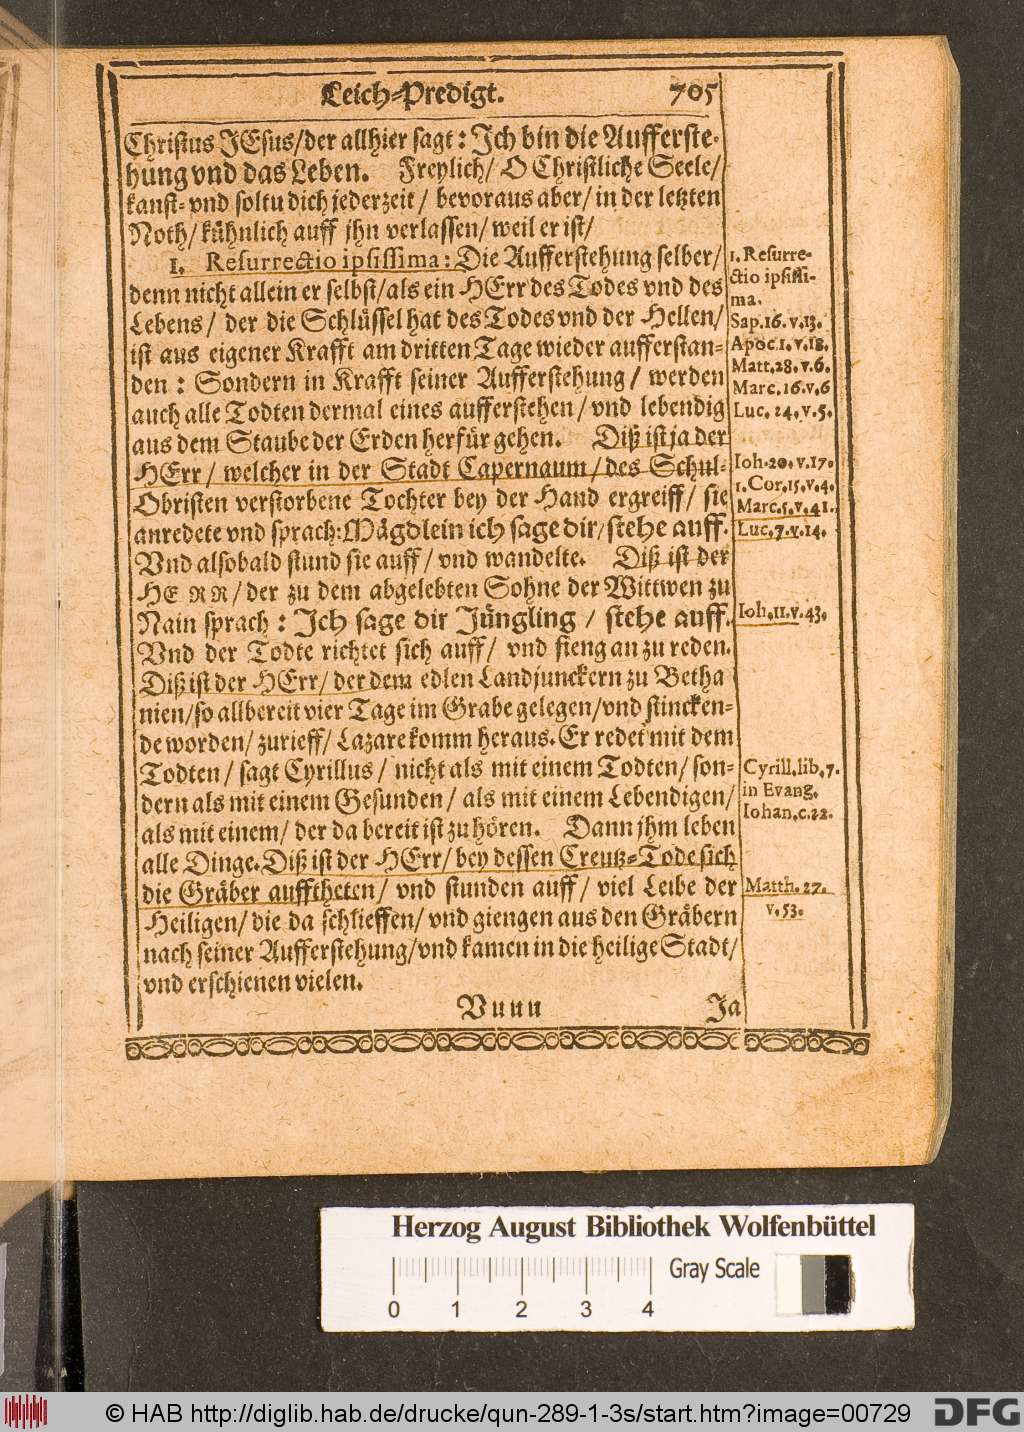 Leich-Predigt. 705
Christus JEsus/der allhier sagt: Jch bin die Aufferste-
hung vnd das Leben. Freylich/ O Christliche Seele/
kanst- vnd soltu dich jederzeit/ bevoraus aber/ in der letzten
Noth/ kühnlich auff jhn verlassen/ weil er ist/
1. Resurrectio ipsissima: Die Aufferstehung selber/
denn nicht allein er selbst/als ein HErr des Todes vnd des
Lebens/ der die Schlüssel hat des Todes vnd der Hellen/
ist aus eigener Krafft am dritten Tage wieder aufferstan-
den: Sondern in Krafft seiner Aufferstehung/ werden
auch alle Todten dermal eines aufferstehen/ vnd lebendig
aus dem Staube der Erden herfür gehen. Diß ist ja der
HErr/ welcher in der Stadt Capernaum/des Schul-
Obristen verstorbene Tochter bey der Hand ergreiff/ sie
anredete vnd sprach: Mägdlein ich sage dir/stehe auff.
Vnd alsobald stund sie auff/ vnd wandelte. Diß ist der
HERR/ der zu dem abgelebten Sohne der Wittwen zu
Nain sprach: Jch sage dir Jüngling/ stehe auff.
Vnd der Todte richtet sich auff/ vnd fieng an zu reden.
Diß ist der HErr/ der dem edlen Landjunckern zu Betha
nien/so allbereit vier Tage im Grabe gelegen/vnd stincken-
de worden/ zurieff/ Lazare komm heraus. Er redet mit dem
Todten/ sagt Cyrillus/ nicht als mit einem Todten/ son-
dern als mit einem Gesunden/ als mit einem Lebendigen/
als mit einem/ der da bereit ist zu hören. Dann jhm leben
alle Dinge. Diß ist der HErr/ bey dessen Creutz-Tode sich
die Gräber aufftheten/ vnd stunden auff/ viel Leibe der
Heiligen/ die da schlieffen/ vnd giengen aus den Gräbern
nach seiner Aufferstehung/vnd kamen in die heilige Stadt/
vnd erschienen vielen.
Vuuu Ja
1. Resurre-
ctio ipsissi-
ma.
Sap.16.v.13.
Apoc.1.v.18.
Matt.28.v.6.
Marc.16.v.6
Luc. 24.v.5.
Ioh.20.v.17.
1.Cor.15.v.4.
Marc.5.v.41.
Luc.7.v.14.
Ioh.11.v.43.
Cyrill.lib.7.
in Evang.
Iohan.c.22.
Matth.27.
v.53.
Herzog August Bibliothek Wolfenbüttel
Gray Scale
0 1 2 3 4
© HAB http://diglib.hab.de/drucke/qun-289-1-3s/start.htm?image=00729
DFG